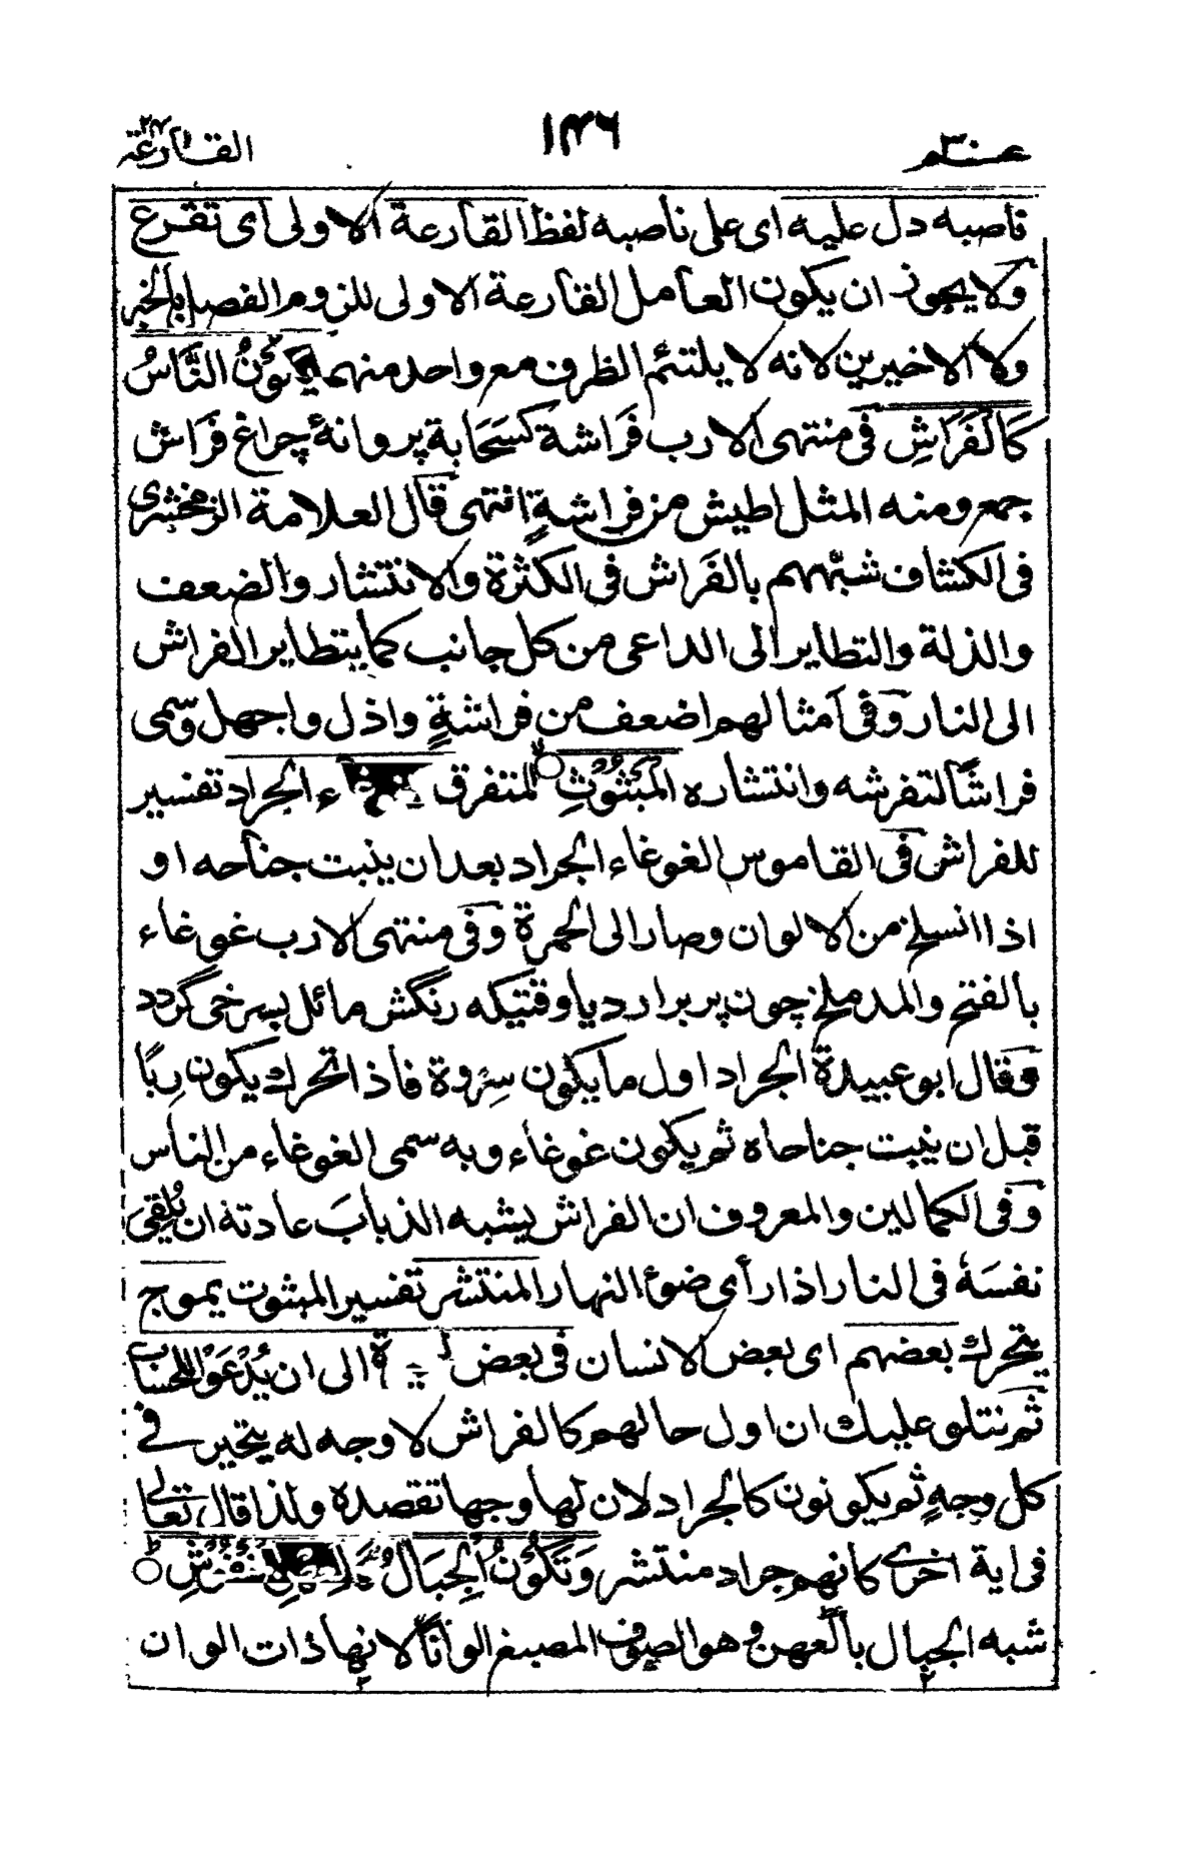 عـــم۳۰ ۱۴۶ القارعة
ناصبه دل عليه اى على ناصبه لفظ القارعة الاولى اى تقرع
ولا يجوز ان يكون العامل القارعة الاولى للزوم الفصل بالخبر
ولا الاخيرين لانه لا يلتئم الظرف مع واحد منهما يَكُوْنُ النَّاسُ
كَالْفَرَاشِ فى منتهى الارب فَراشة كسَحَابة پروانهٔ چراغ فَراش
جمع ومنه المثل اطيش من فراشةٍ انتهى قال العلامة الزمخشرى
فى الكشاف شبّههم بالفَراش فى الكثرة والانتشار والضعف
والذلة والتطاير الى الداعى من كل جانب كما يتطاير الفراش
الى النار وفى امثالهم اضعف من فراشةٍ واذل واجهل وسمى
فراشًا لتفرشه وانتشاره الْمَبْثُوْثِ المتفرق ء الجراد تفسير
للفراش فى القاموس الغوغاء الجراد بعد ان ينبت جناحه او
اذا انسلخ من الالوان وصار الى الحمرة وفى منتهى الارب غوغاء
بالفتح والمد ملخ چون پر برارد يا وقتيكه رنگش مائل بسرخى گردد
وقال ابو عبيدة الجراد اول ما يكون سروة فاذا تحرك يكون دبًا
قبل ان ينبت جناحاه ثم يكون غوغاء وبه سمى الغوغاء من الناس
وفى الكمالين والمعروف ان الفراش يشبه الذبابَ عادته ان يُلقىَ
نفسَهٗ فى النار اذا رأى ضوء النهار المنتشر تفسير المبثوث يموج
يتحرك بعضهم اى بعض الانسان فى بعض الى ان يُدْعَوْا للحساب
ثم نتلو عليك ان اول حالهم كالفراش لا وجه له يتحير فى
كل وجهٍ ثم يكونون كالجراد لان لها وجها تقصده ولذا قال تعالى
فى اية اخرى كانهم جراد منتشر وَتَكُوْنُ الْجِبَالُ كَالْعِهْنِ الْمَنْفُوْشِ
شبه الجبال بالعهن وهو الصوف المصبغ الوانًا لانها ذات الوان